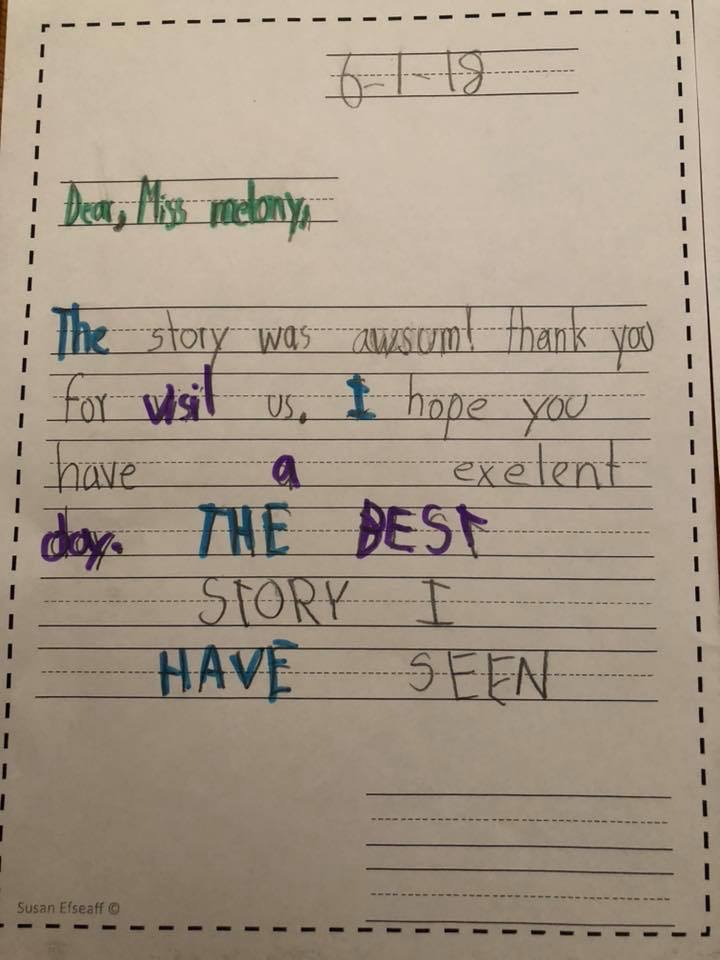 6-1-18
Dear, Miss melony,
The story was awsum! thank you
for visit us. I hope you
have a exelent
day. THE BEST
STORY I
HAVE SEEN
Susan Efseaff ©